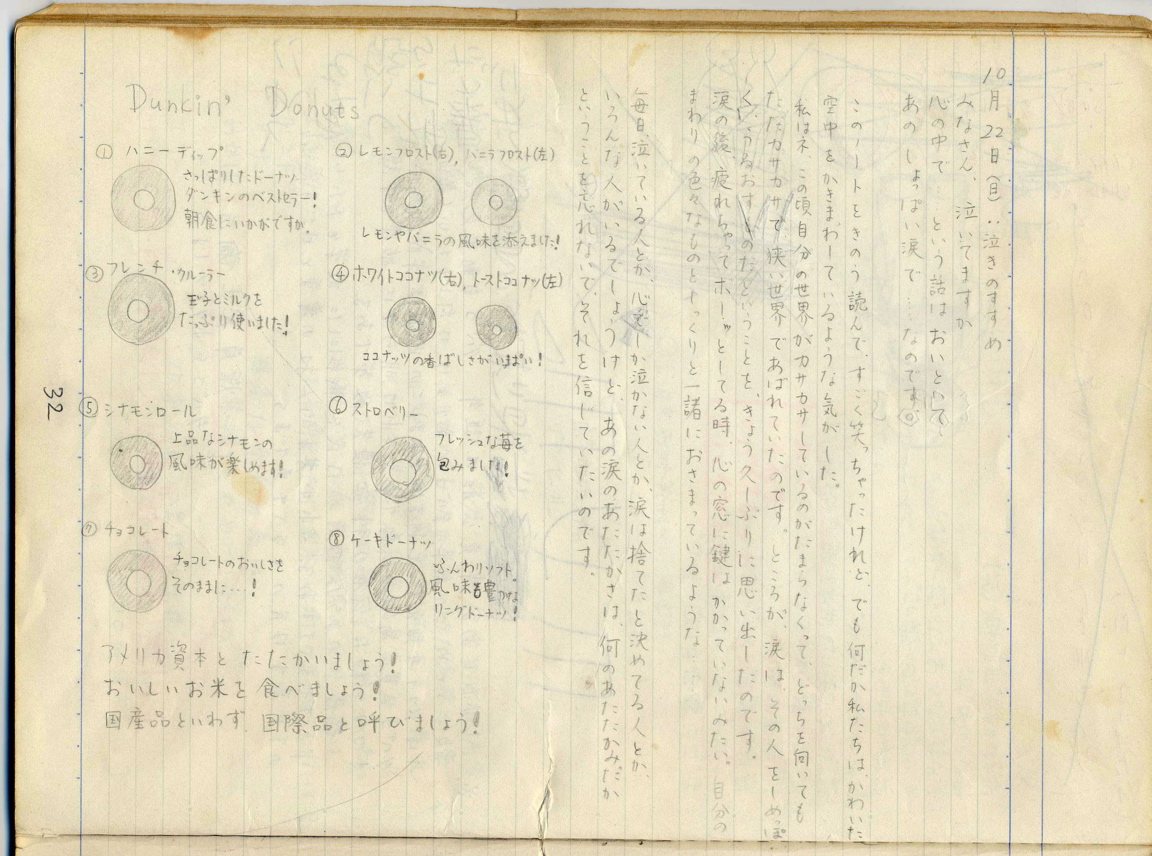 10月22日(日)‥泣きのすすめ
みなさん、泣いてますか
心の中で…という話はおいといて
あのしょっぱい涙で…なのです
このノートをきのう読んで、すごく笑っちゃったけれど、でも何だか私たちは、かわいた
空中をかきまわしているような気がした。
私はネ、この頃自分の世界がカサカサしているのがたまらなくって、どっちを向いても
ただカサカサで、狭い世界であばれていたのです。ところが、涙は、その人をしめっぽ
く、うるおすものだということを、きょう久しぶりに思い出したのです。
涙の後、疲れちゃってボーッとしてる時、心の窓に鍵はかかっていないみたい。自分の
まわりの色々なものとしっくりと一諸におさまっているような…
毎日、泣いている人とか、心でしか泣かない人とか、涙は捨てたと決めてる人とか、
いろんな人がいるでしょうけど、あの涙のあたたかさは、何のあたたかみだか
ということを忘れないで、それを信じていたいのです。
Dunkin' Donuts
① ハニーディップ
さっぱりしたドーナッツ
ダンキンのベストセラー!
朝食にいかがですか。
② レモンフロスト(右)、バニラフロスト(左)
レモンやバニラの風味を添えました!
③ フレンチ・クルーラー
玉子とミルクを
たっぷり使いました!
④ ホワイトココナツ(右)、トーストココナツ(左)
ココナッツの香ばしさがいっぱい!
⑤ シナモンロール
上品なシナモンの
風味が楽しめます!
⑥ ストロベリー
フレッシュな苺を
包みました!
⑦ チョコレート
チョコレートのおいしさを
そのままに…!
⑧ ケーキドーナッツ
ふんわりソフト。
風味豊かな
リングドーナッツ!
アメリカ資本とたたかいましょう!
おいしいお米を食べましょう!
国産品といわず、国際品と呼びましょう!
32